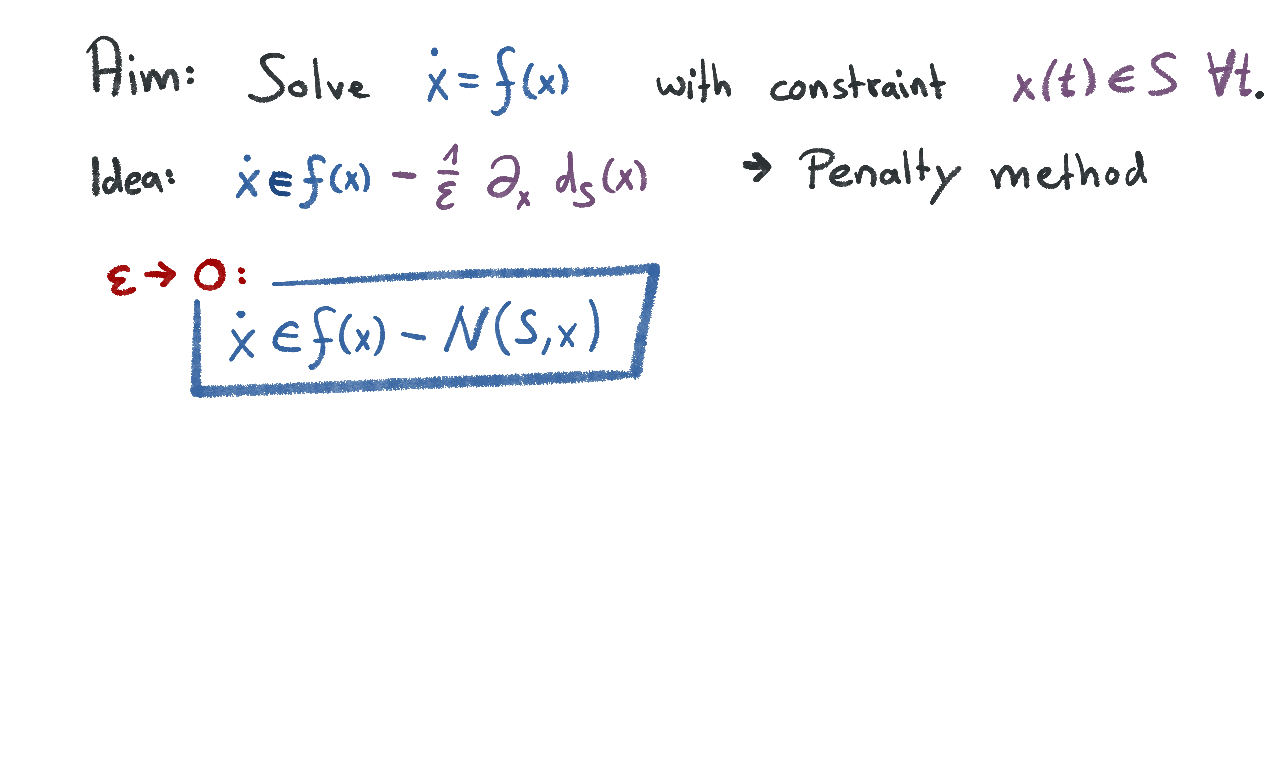 Aim: Solve ẋ = f(x) with constraint x(t) ∈ S ∀t.
Idea: ẋ ∈ f(x) - 1/ε ∂ₓ d_S(x) → Penalty method
ε → 0:
ẋ ∈ f(x) - N(S, x)